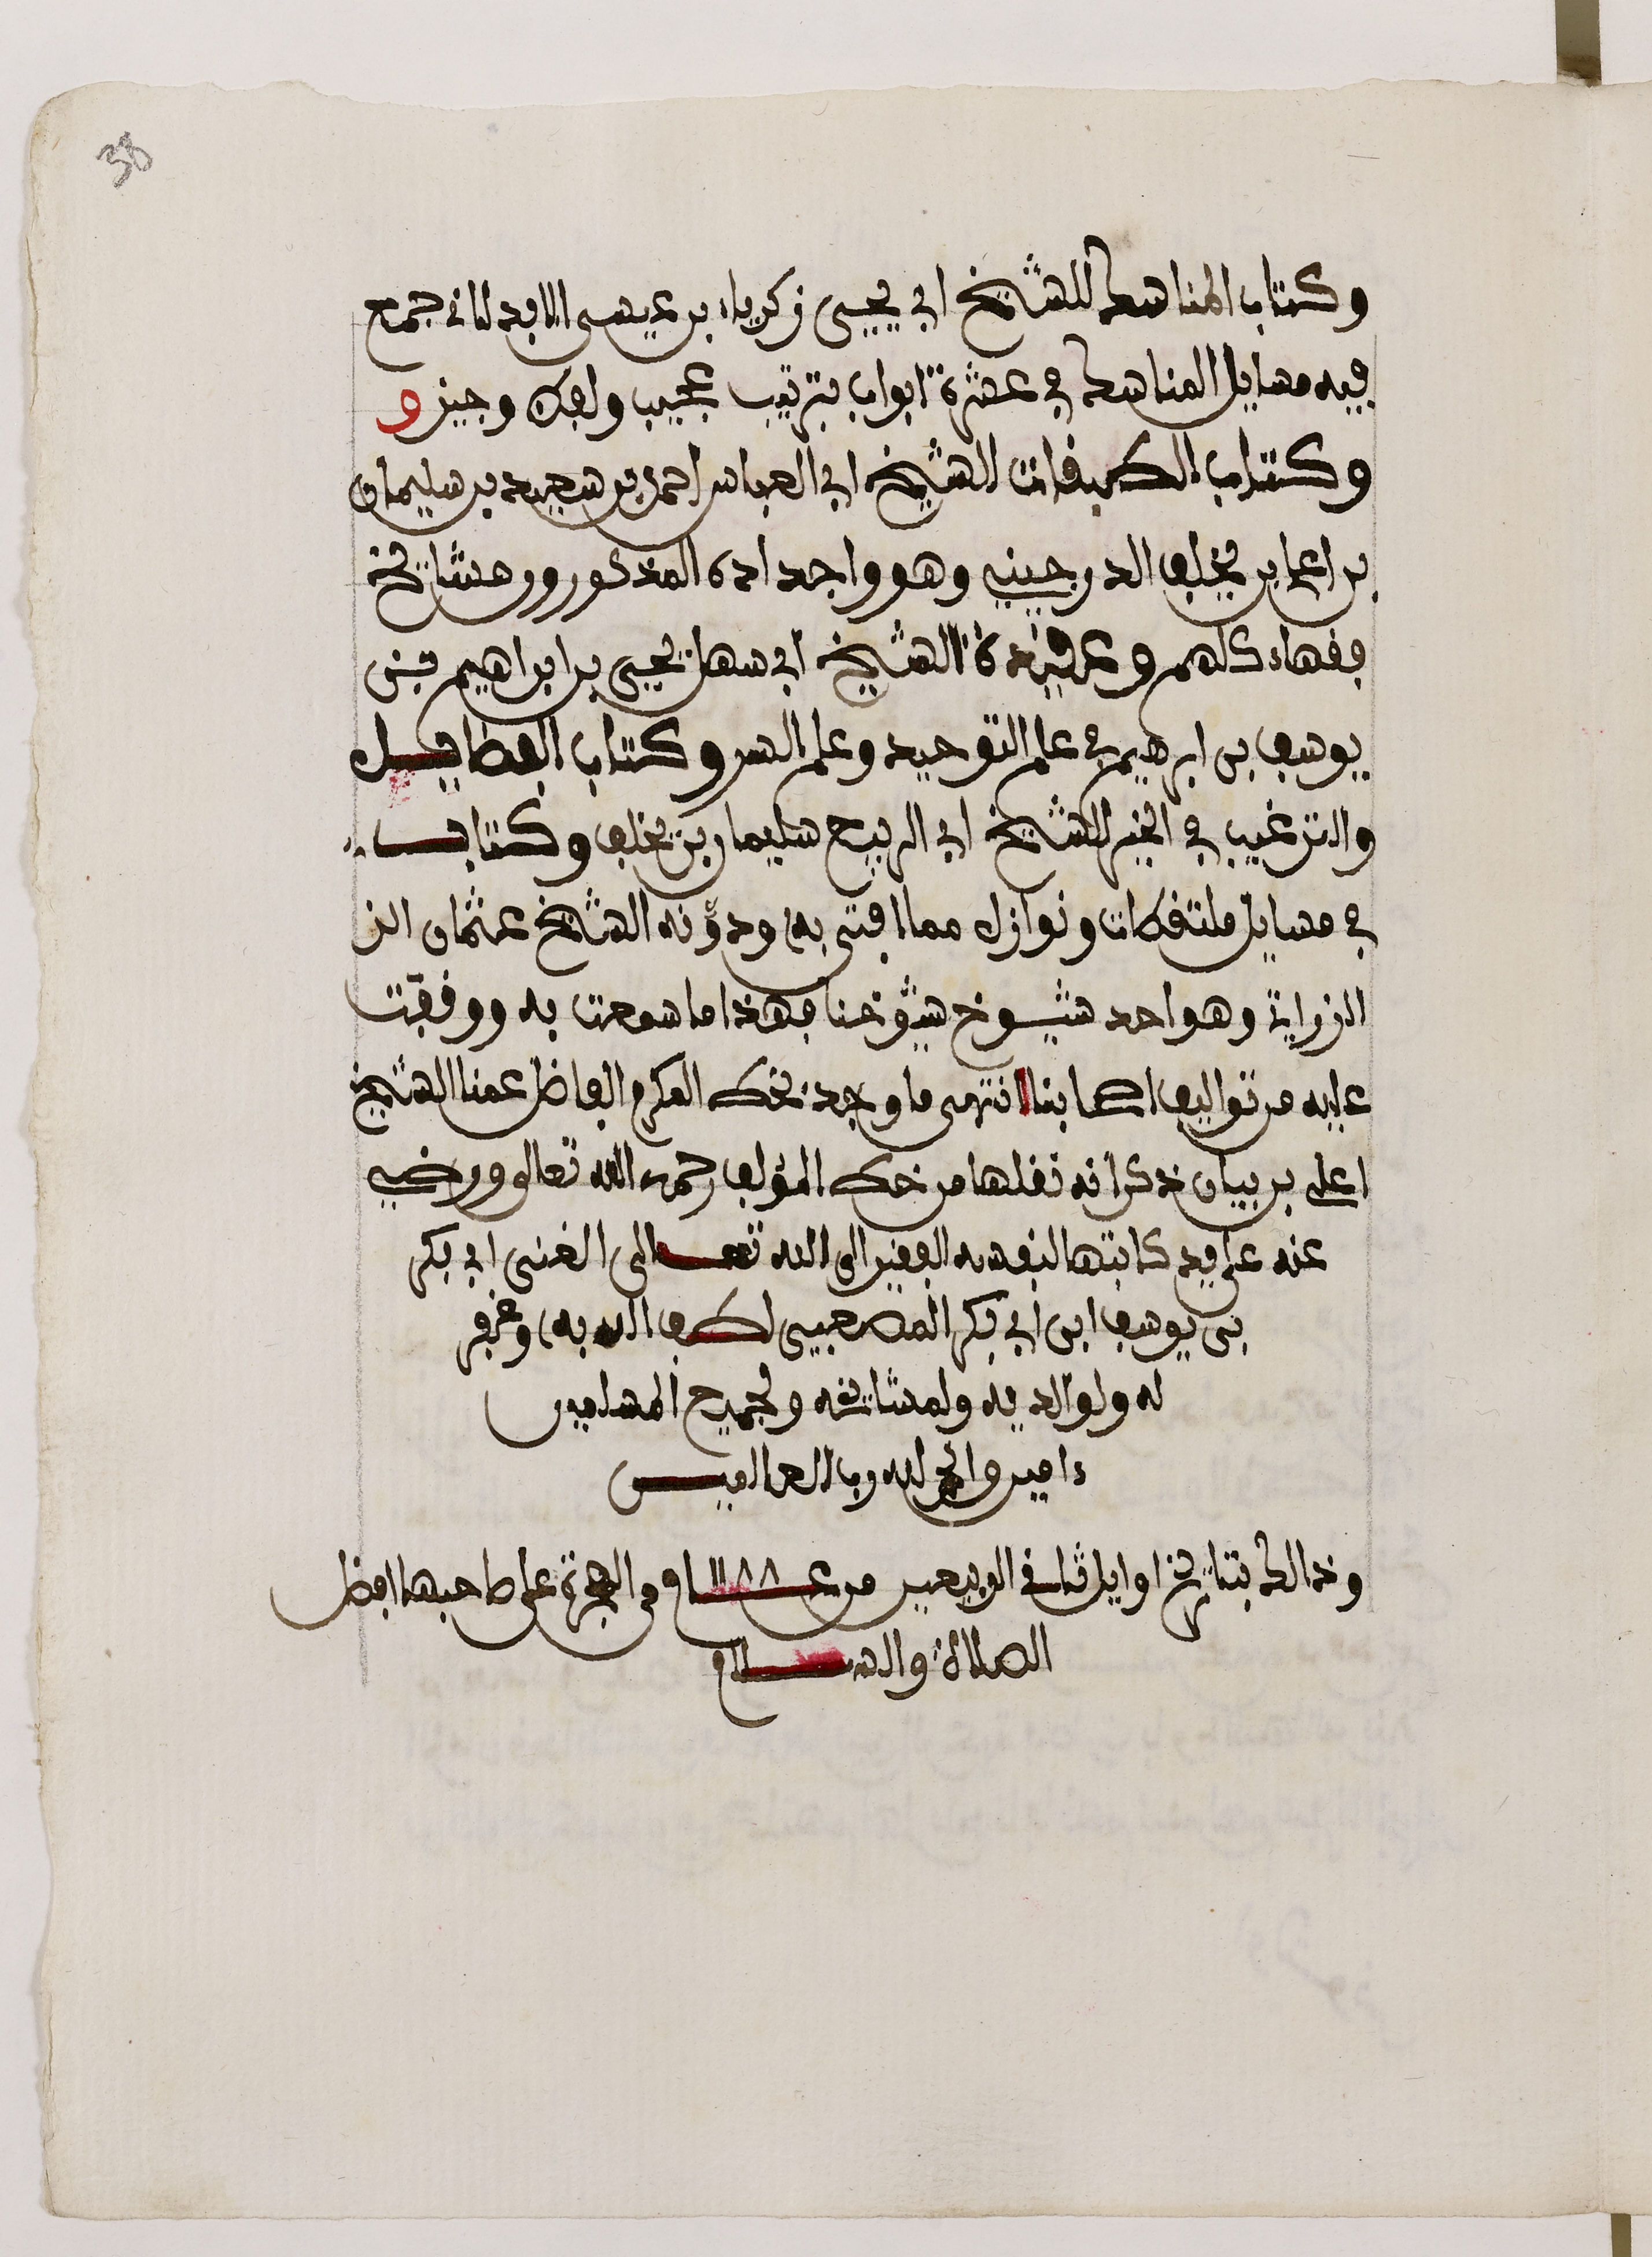 38
وكتاب المناسك للشيخ ابي يحيى زكرياء بن عيسى الابدلاني جمع
فيه مسايل المناسك في عشرة ابواب بترتيب عجيب ولفظ وجيز و
وكتاب الطبقات للشيخ ابي العباس احمد بن سعيد بن سليمان
بن اعلى بن يخلف الدرجيني وهو واجداده المذكورون مشايخ
فقهاء كلهم وعقيدة الشيخ ابي سهل يحيى بن ابراهيم بن
يوسف بن ابرهيم في علم التوحيد وعلم السر وكتاب الفضايل
والترغيب في الخير للشيخ ابي الربيع سليمان بن يخلف وكتاب
في مسايل ملتقطات ونوازل مما افتى به ودونه الشيخ عثمان الز
الزراتي وهو احد شيوخ شيوخنا فهذا ما سمعت به ووقفت
عليه من تواليف اصحابنا انتهى ما وجد بخط المكرم الفاضل عمنا الشيخ
اعلي بن بيان ذكر انه نقلها من خط المؤلف رحمه الله تعالى ورضي
عنه على يد كاتبها لنفسه الفقير الى الله تعالى الغني ابي بكر
بن يوسف ابن ابي بكر المصعبي لطف الله به وغفر
له ولوالديه ولمشايخه ولجميع المسلمين
ءامين والحمد لله رب العالمين
وذالك بتاريخ اوايل ثاني الربيعين من عام ١١٨٨ من الهجرة على صاحبها افضل
الصلاة والسلام